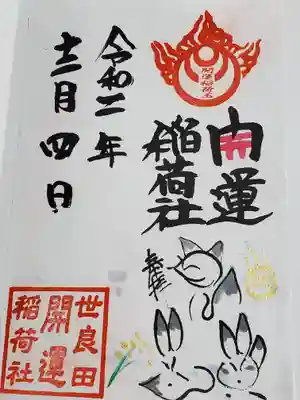 開運稲荷社
開運
稲荷社
奉拝
令和二年
十二月四日
世良田
開運
稲荷社